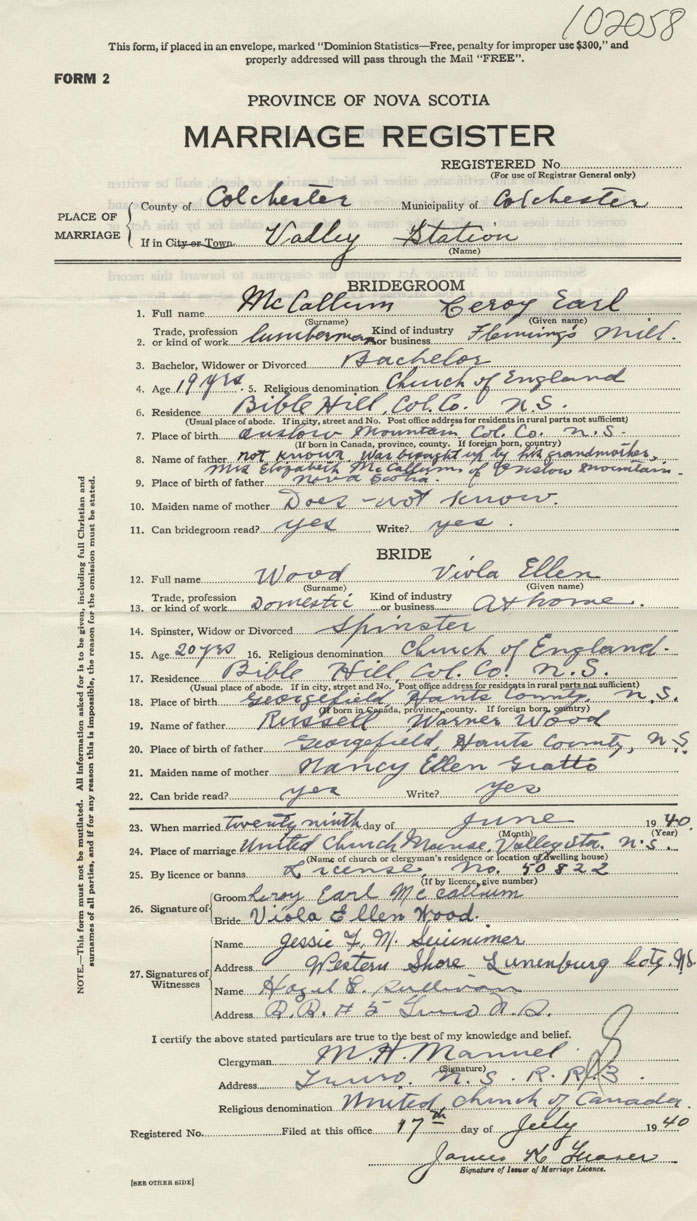 102058
This form, if placed in an envelope, marked "Dominion Statistics—Free, penalty for improper use $300," and
properly addressed will pass through the Mail "FREE".
FORM 2
PROVINCE OF NOVA SCOTIA
MARRIAGE REGISTER
REGISTERED No.
(For use of Registrar General only)
PLACE OF MARRIAGE
County of Colchester Municipality of Colchester
If in City or Town Valley Station
(Name)
BRIDEGROOM
1. Full name McCallum Leroy Earl
(Surname) (Given name)
2. Trade, profession or kind of work lumberman Kind of industry or business Flemings Mill.
3. Bachelor, Widower or Divorced Bachelor
4. Age 19 yrs. 5. Religious denomination Church of England
6. Residence Bible Hill, Col. Co. N.S.
(Usual place of abode. If in city, street and No. Post office address for residents in rural parts not sufficient)
7. Place of birth Onslow Mountain Col. Co. N.S.
(If born in Canada, province, county. If foreign born, country)
8. Name of father not known. Was brought up by his grandmother,
Mrs Elizabeth McCallum of Onslow Mountain.
9. Place of birth of father Nova Scotia.
10. Maiden name of mother Does not know.
11. Can bridegroom read? yes Write? yes.
BRIDE
12. Full name Wood Viola Ellen
(Surname) (Given name)
13. Trade, profession or kind of work Domestic Kind of industry or business At home.
14. Spinster, Widow or Divorced Spinster
15. Age 20 yrs 16. Religious denomination Church of England.
17. Residence Bible Hill, Col. Co. N.S.
(Usual place of abode. If in city, street and No. Post office address for residents in rural parts not sufficient)
18. Place of birth Georgefield, Hants County, N.S.
(If born in Canada, province, county. If foreign born, country)
19. Name of father Russell Warner Wood
20. Place of birth of father Georgefield, Hants County, N.S.
21. Maiden name of mother Nancy Ellen Gratto
22. Can bride read? yes Write? yes
23. When married twenty ninth day of June 1940.
(Month) (Year)
24. Place of marriage United Church Manse, Valley Sta. N.S.
(Name of church or clergyman's residence or location of dwelling house)
25. By licence or banns License, No. 50822
(If by licence, give number)
26. Signature of
Groom Leroy Earl McCallum
Bride Viola Ellen Wood.
27. Signatures of Witnesses
Name Jessie F. M.
Address Western Shore Lunenburg Coty. N.S.
Name Hazel E. Sullivan
Address R.R. # 5 Truro N.S.
I certify the above stated particulars are true to the best of my knowledge and belief.
Clergyman M. H. Manuel.
(Signature)
Address Truro. N.S. R.R. 3
Religious denomination United Church of Canada.
Registered No. Filed at this office 17th day of July 1940
James K Fraser
Signature of Issuer of Marriage Licence.
[SEE OTHER SIDE]
NOTE.—This form must not be mutilated. All information asked for is to be given, including full Christian and
surnames of all parties, and if for any reason this is impossible, the reason for the omission must be stated.